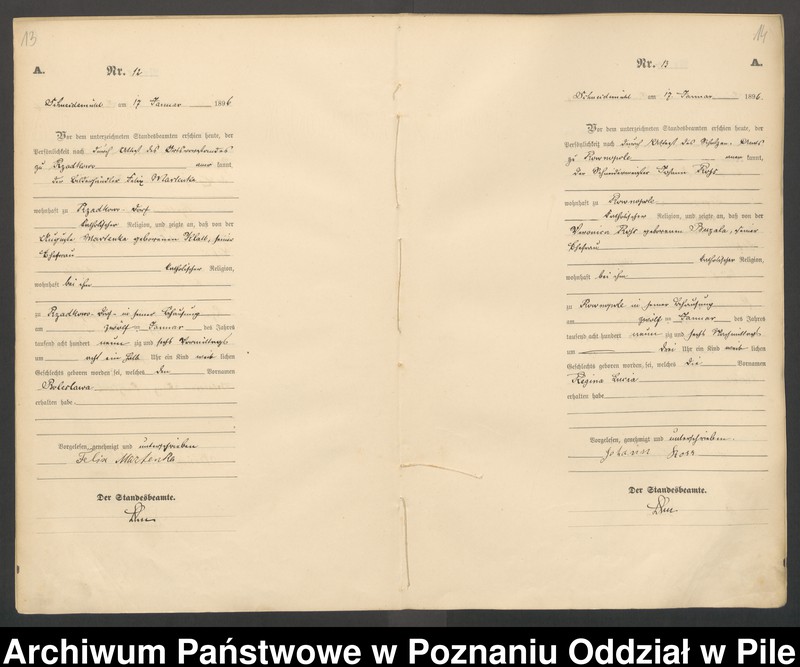 13
A. Nr. 12
Schneidemühl am 17 Januar 1896
Vor dem unterzeichneten Standesbeamten erschien heute, der
Persönlichkeit nach durch Attest des Ortsvorstandes
zu Rzadkowo anerkannt,
der Bilderhändler Felix Martenka
wohnhaft zu Rzadkowo-Dorf
katholischer Religion, und zeigte an, daß von der
Auguste Martenka geborenen Klatt, seiner
Ehefrau
katholischer Religion,
wohnhaft bei ihm
zu Rzadkowo-Dorf in seiner Behausung
am zwölften Januar des Jahres
tausend acht hundert neunzig und sechs Vormittags
um acht ein halb Uhr ein Kind weiblichen
Geschlechts geboren worden sei, welches den Vornamen
Boleslawa
erhalten habe.
Vorgelesen, genehmigt und unterschrieben
Felix Martenka
Der Standesbeamte.
14
Nr. 13 A.
Schneidemühl am 17 Januar 1896.
Vor dem unterzeichneten Standesbeamten erschien heute, der
Persönlichkeit nach durch Attest des Schulzen-Amts
zu Rownopole anerkannt,
der Schneidermeister Johann Ross
wohnhaft zu Rownopole
katholischer Religion, und zeigte an, daß von der
Veronica Ross geborenen Buzala, seiner
Ehefrau
katholischer Religion,
wohnhaft bei ihm
zu Rownopole in seiner Behausung
am zwölften Januar des Jahres
tausend acht hundert neunzig und sechs Nachmittags
um drei Uhr ein Kind weiblichen
Geschlechts geboren worden sei, welches die Vornamen
Regina Lucia
erhalten habe
Vorgelesen, genehmigt und unterschrieben.
Johann Ross
Der Standesbeamte.
Archiwum Państwowe w Poznaniu Oddział w Pile